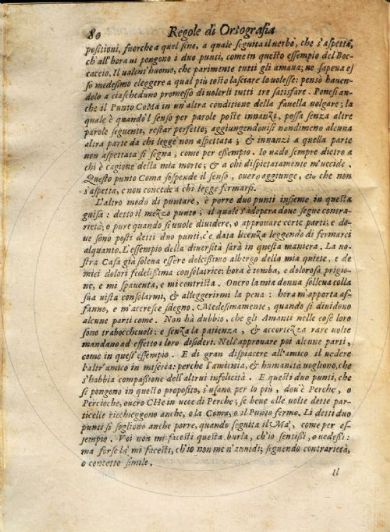 80 Regole di Ortografia
positioni, fuorche a quel fine, a quale seguita il uerbo, che s'aspetta,
ch'all'hora ui pongono i due punti, come in questo essempio del Boc-
caccio. Il ualent'huomo, che parimente tutti gli amaua, ne sapeua es
so medesimo eleggere a qual più tosto lasciare lo uolesse: penso hauen-
dolo a ciascheduno promesso di uolerli tutti tre satisfare. Ponesi an-
che il Punto CoMa in un'altra conditione della fauella uolgare; la
quale è quando'l senso per parole poste innanzi, possa senza altre
parole seguenti, restar perfetto, aggiungendouisi nondimeno alcuna
altra parte da chi legge non aspettata; & innanzi a quella parte
non aspettata si segna, come per essempio. Io uado sempre dietro a
chi è cagione della mia morte; & a chi dispietatamente m'uccide.
Questo punto Coma sospende il senso, ouero aggiunge, & che non
s'aspetta, e non concede a chi legge fermarsi.
L'altro modo di puntare, è porre duo punti insieme in questa
guisa: detto il mezzo punto; il quale s'adopera doue segue contra-
rietà, o pure quando si vuole diuidere, o approuare certe parti; e do-
ue sono poste detti duo punti, c'è data licenza leggendo di fermarci
alquanto. L'essempio della diuersità sarà in questa maniera. La no-
stra Casa già soleua essere dolcissimo albergo della mia quiete, e de
miei dolori fedelissima consolatrice: hora è tomba, e dolorosa prigio-
ne, e mi spauenta, e mi contrista. Ouero la mia donna soleua colla
sua uista consolarmi, & alleggerirmi la pena: hora m'apporta af-
fanno, e m'accresce sdegno. Medesimamente, quando si diuidono
alcune parti come. Non hà dubbio, che gli Amanti nelle cose loro
sono trabocheuoli: e senza la patienza, & accortezza rare uolte
mandano ad effetto i loro disideri. Nell'approuare poi alcune parti,
come in quest'essempio. E di gran dispiacere all'amico il uedere
l'altr'amico in miseria: perche l'amicitia, & humanità uogliono, che
s'habbia compassione dell'altrui infelicità. E questi duo punti, che
si pongono in questo proposito, s'usano per lo più, dou'è Perche, o
Percioche, ouero CHe in uece di Perche; se bene alle uolte queste par-
ticelle richieggono anche, o la Coma, o il Punto fermo. Li detti duo
punti si sogliono anche porre, quando seguita il Mà, come per es-
sempio. Voi non mi facesti questa burla, ch'io sentissi, o uedessi:
ma forse la mi facesti, ch'io non me n'auuidi; seguendo contrarietà,
o concetto simile.
Il